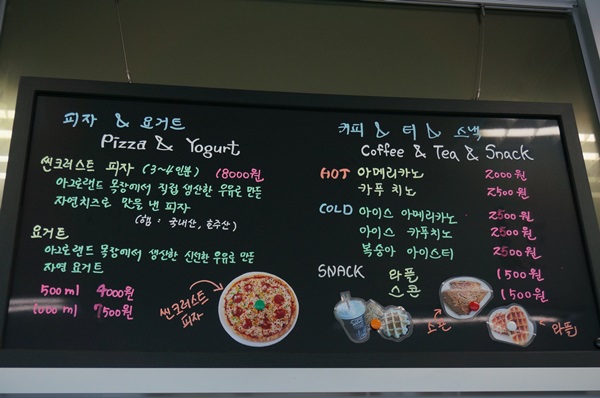 피자 & 요거트
Pizza & Yogurt
씬크러스트 피자 (3~4인분) 18000원
아그로랜드 목장에서 직접 생산한 우유로 만든
자연치즈로 맛을 낸 피자
(햄 : 국내산, 호주산)
요거트
아그로랜드 목장에서 생산한 신선한 우유로 만든
자연 요거트
500 ml 4000원
1000 ml 7500원
씬크러스트
피자
커피 & 티 & 스넥
Coffee & Tea & Snack
HOT 아메리카노 2000원
카푸치노 2500원
COLD 아이스 아메리카노 2500원
아이스 카푸치노 2500원
복숭아 아이스티 2500원
SNACK 와플 1500원
스콘 1500원
스콘
와플